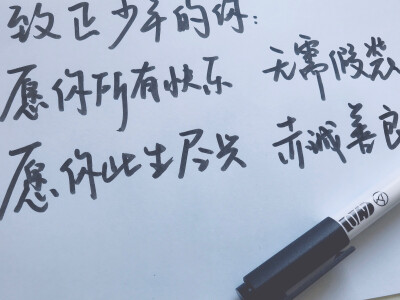 致正少年的你:
愿你所有快乐 无需假装
愿你此生尽兴 赤诚善良